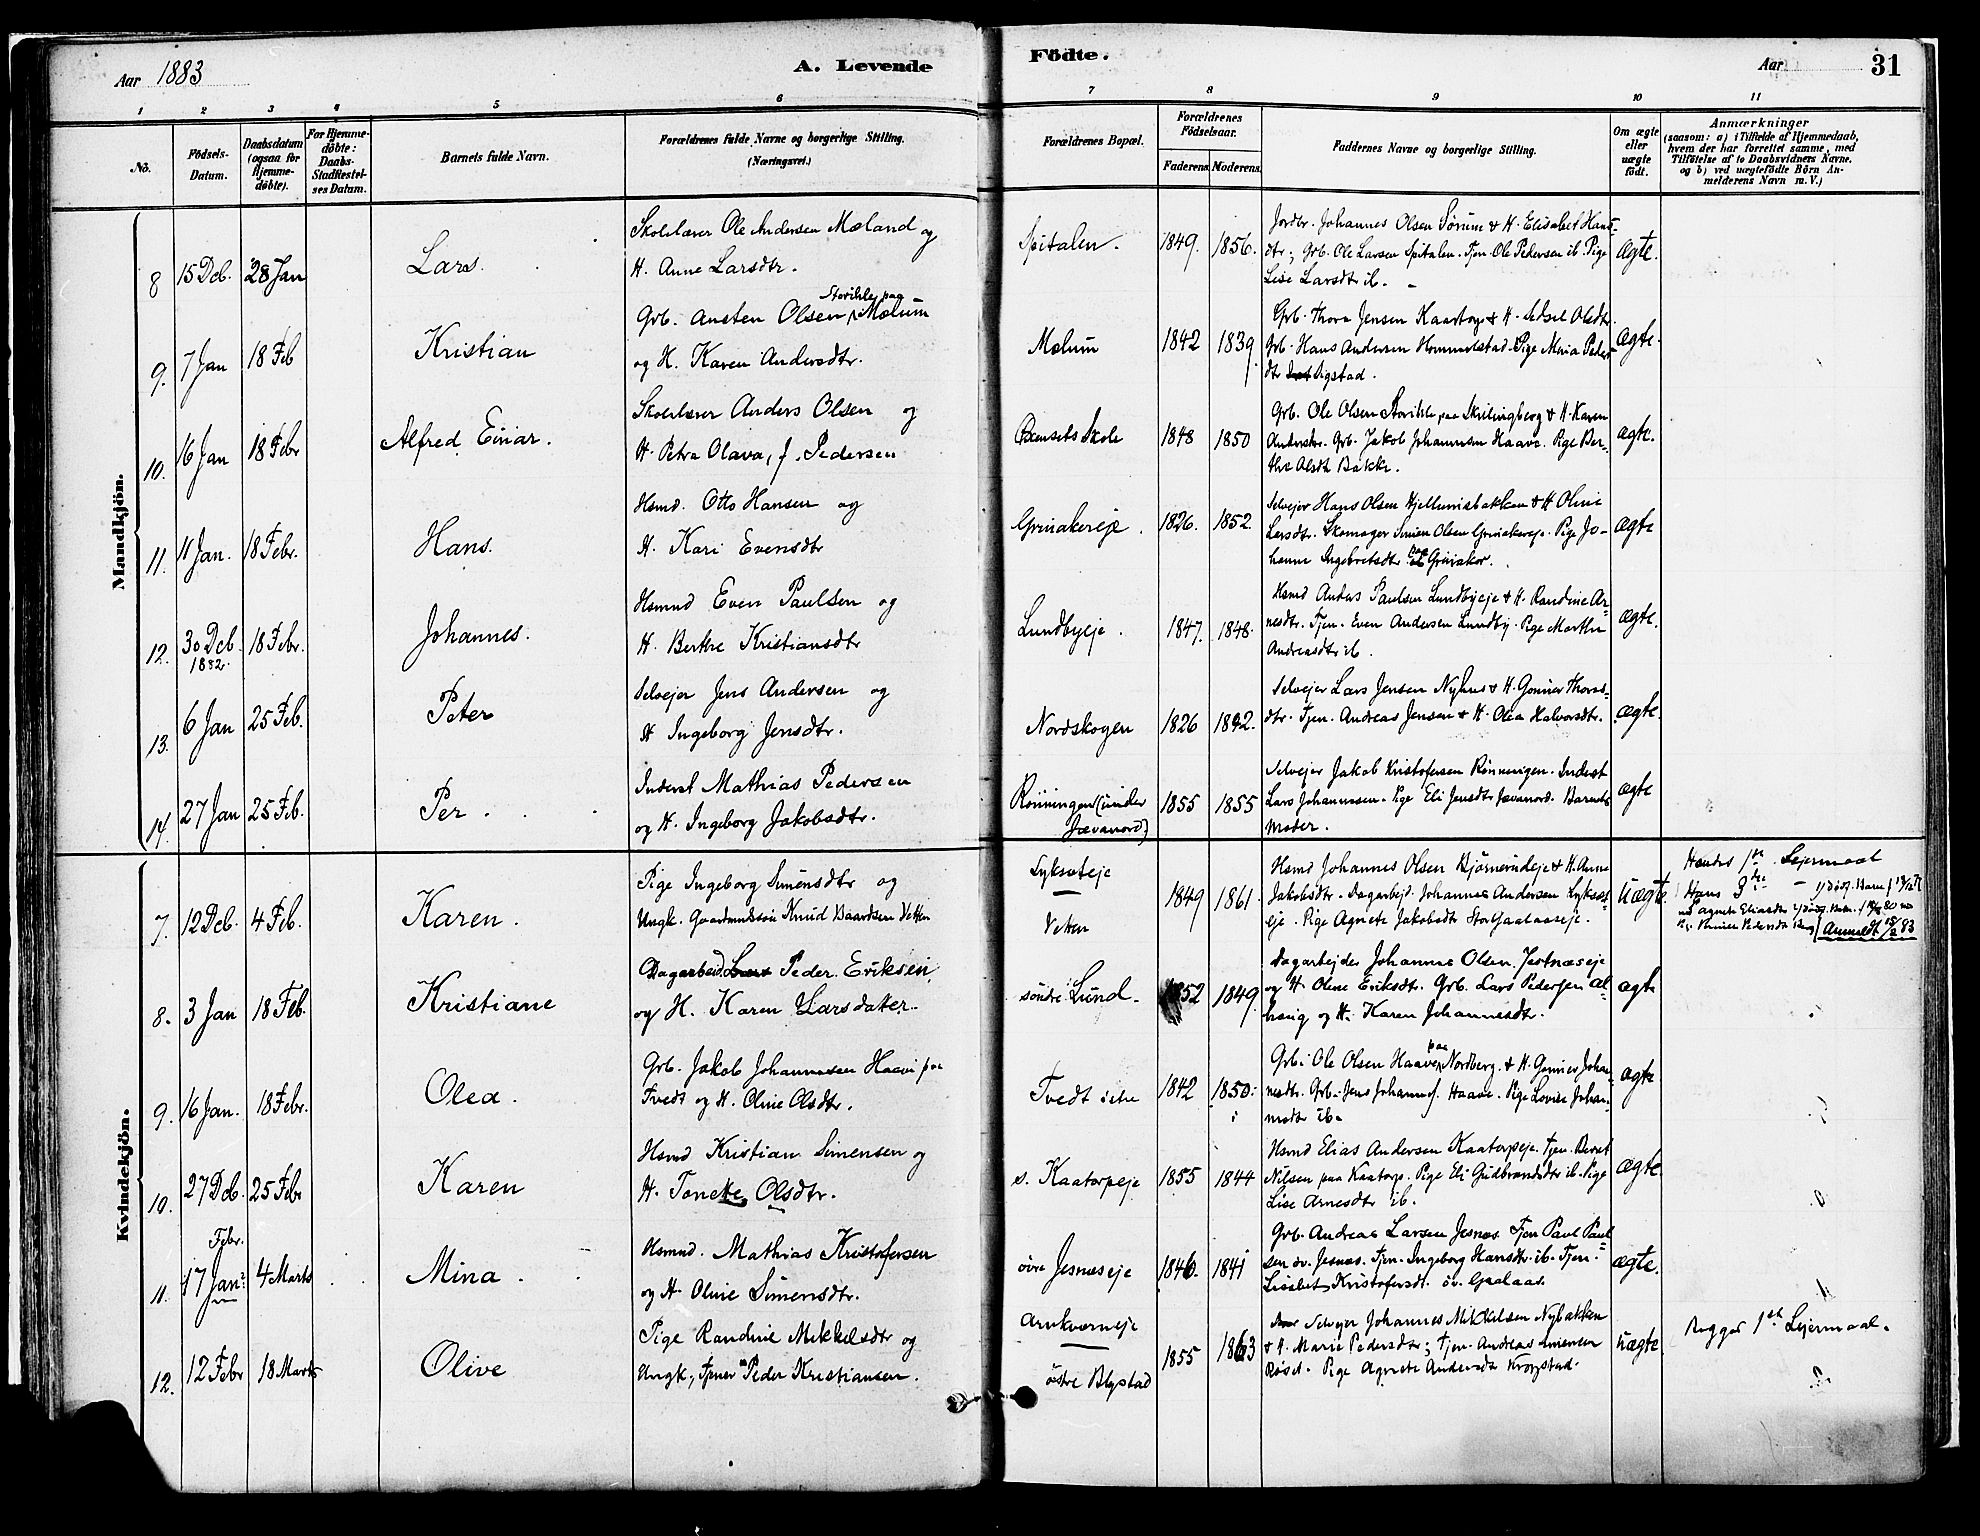 Aar 1883
A. Levende
Födte.
Aar
31
1 2 3 4 5 6 7 8 9 10 11
No.
Födsels-
Datum.
Daabsdatum
(ogsaa for
Hjemme-
døbte).
For Hjemme-
døbte:
Daabs-
Stadfæstel-
ses Datum.
Barnets fulde Navn.
Forældrenes fulde Navne og borgerlige Stilling.
(Næringsvei.)
Forældrenes Bopæl.
Forældrenes
Födselsaar.
Faderens Moderens
Faddernes Navne og borgerlige Stilling.
Om ægte
eller
uægte
født.
Anmærkninger
(saasom: a) i Tilfælde af Hjemmedaab,
hvem der har forrettet samme, med
Tilføielse af to Daabsvidners Navne.
og b) ved uægtefødte Börn An-
melderens Navn m. V.)
Mandkjön.
8 15 Dcb. 28 Jan Lars.
Skolelærer Ole Andersen Mæland og
H. Anne Larsdtr.
Spitalen. 1849. 1856.
Jordbr. Johannes Olsen Sørum & H. Elisabet Hans-
dtr; Grb. Ole Larsen Spitalen. Tjen. Ole Pedersen ib. Pige
Lise Larsdtr ib.
ægte.
9. 7 Jan 18 Feb Kristian
Grb. Ansten Olsen Storihle paa Mælum
og H. Karen Andersdtr.
Mælum 1842 1839
Grb. Thora Jensen Kaatorp & H. Sidsel Olsdtr.
Grb. Hans Andersen Hommelstad. Pige Maria Peders-
dtr Sigstad.
ægte.
10. 16 Jan 18 Febr Alfred Einar.
Skolelærer Anders Olsen og
H. Petra Olava, f. Pedersen
Bænsets Skole 1848 1850
Grb. Ole Olsen Storihle paa Skrilingberg & H. Karen
Andersdtr. Grb. Jakob Johannesen Haave. Pige Ber-
the Olsdt Bakke.
ægte.
11. 11 Jan. 18 Febr. Hans.
Hsmd. Otto Hansen og
H. Kari Evensdtr
Griniakereje. 1826. 1852.
Selvejer Hans Olsen Hjellumsbakken & H. Oline
Larsdtr. Skomager Simen Olsen Griniakereje. Pige Jo-
hanne Ingebretsdtr paa Griniaker.
ægte
12. 30 Dcb. 1882. 18 Febr. Johannes.
Hsmnd Even Paulsen og
H. Berthe Kristiansdtr
Lundbyeje. 1847. 1848.
Hsmd Anders Paulsen Lundbyeje & H. Randine Ar-
nesdtr. Tjen. Even Andersen Lundby. Pige Marthe
Andreasdtr ib.
ægte.
13. 6 Jan 25 Feb. Peter
Selvejer Jens Andersen og
H Ingeborg Jensdtr.
Nordskogen 1826 1842.
Selvejer Lars Jensen Nyhus & H. Gunner Thoras-
dtr. Tjen. Andreas Jensen & H. Olea Halvorsdtr.
ægte.
14. 27 Jan 25 Feb. Per.
Inderst Mathias Pedersen
og H. Ingeborg Jakobsdtr.
Rönningen (under
Jævanord) 1855 1855
Selvejer Jakob Kristofersen Rönningen. Inderst
Lars Johannesen. Pige Eli Jensdtr Jævanord. Barnets
Moder.
ægte
Kvindekjön.
7. 12 Dcb. 4 Feb. Karen.
Pige Ingeborg Simensdtr og
Ungk. Gaardmandssön Knud Baardsen Vetten
Lyksæteje
Vetten
1849 1861.
Hsmd Johannes Olsen Bjørnerudeje & H. Anne
Jakobsdtr. Dagarbejd. Johannes Andersen Lyksæt-
eje. Pige Agnete Jakobsdtr Stor Gaalaaseje.
Uægte.
Hendes 1ste Lejermaal
Hans 3die
Anmeldt
8. 3 Jan 18 Feb. Kristiane
Dagarbeid. Peder Eriksen
og H. Karen Larsdatter.
söndre Lund. 1852 1849
Dagarbejder Johannes Olsen Jestnæseje
og H. Olene Eriksdtr. Grb. Lars Pedersen Al-
haug og H. Karen Johannesdtr.
ægte
9. 16 Jan. 18 Febr. Olea.
Grb. Jakob Johannesen Haave paa
Tvedt og H. Oline Olsdtr.
Tvedt 1842 1850
Grb. Ole Olsen Haave paa Nordberg. & H. Gunner Johan-
nesdtr. Grb. Jens Johannes. Haave. Pige Lovise Johan-
nesdtr ib.
ægte
10. 27 Dcb. 25 Febr Karen
Hsmd Kristian Simensen og
H. Toneke Olsdtr.
s. Kaatorpeje 1855 1844
Hsmd Elias Andersen Kaatorpeje. Tjen. Bernt
Nilsen paa Kaatorp. Pige Eli Gudbrandsdtr ib. Pige
Lise Arnesdtr ib.
ægte
11. Febr. 17 Jan? 4 Marts Mina.
Hsmnd. Mathias Kristofersen
og H. Oline Simensdtr.
övre Jesnæseje 1846. 1841
Grb. Andreas Larsen Jesnæs Tjen Paul Paul-
sen öv. Jesnæs. Tjen. Ingeborg Hansdtr ib. Tjen.
Lisabet Kristofersdt. öv. Gaalaas.
ægte.
12. 12 Febr 18 Marts Olive
Pige Randine Mikkelsdtr og
Ungk., Tjener Peder Kristiansen.
Arnkværneje
östre Blystad
1855 1863
Selvejer Johannes Mikkelsen Nybakken
& H. Marie Pedersdtr; Tjen. Andreas Simensen
Røset. Pige Agnete Andersdtr Kropstad.
uægte.
Begges 1ste Lejermaal.